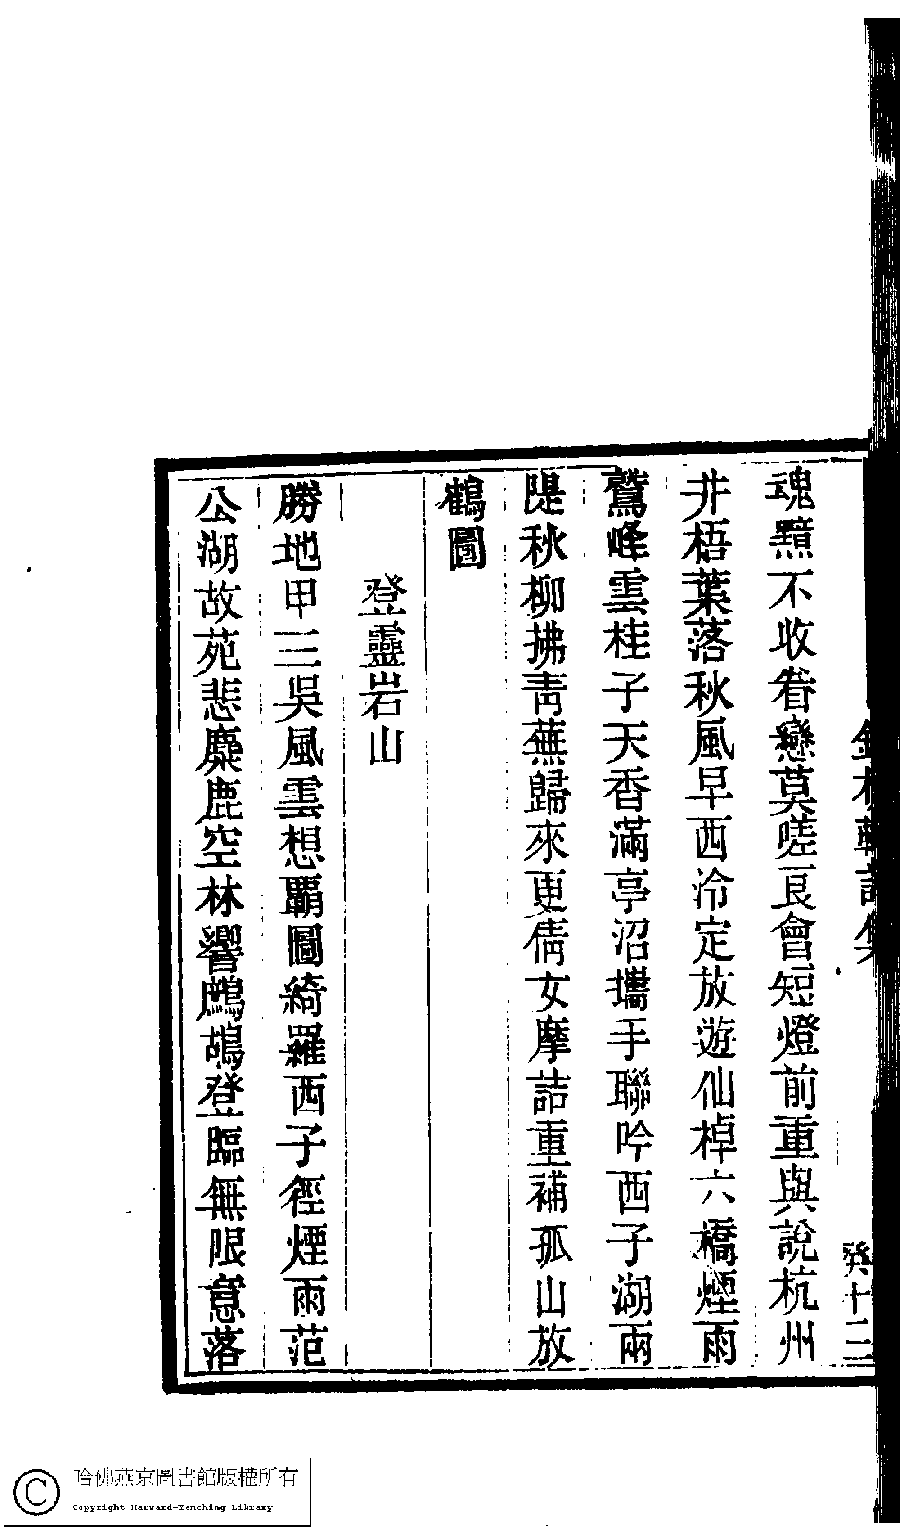 魂黯不收眷戀莫嗟良會短燈前重與說杭州
井梧葉落秋風早西泠定放遊仙棹六橋煙雨
鷲峰雲桂子天香滿亭沼攜手聯吟西子湖兩
隄秋柳拂青蕪歸來更倩女摩詰重補孤山放
鶴圖
登靈岩山
勝地甲三吳風雲想霸圖綺羅西子徑煙雨范
公湖故苑悲麋鹿空林響鷓鴣登臨無限意落
癸十二
哈佛燕京圖書館版權所有
Copyright Harvard-Yenching Library